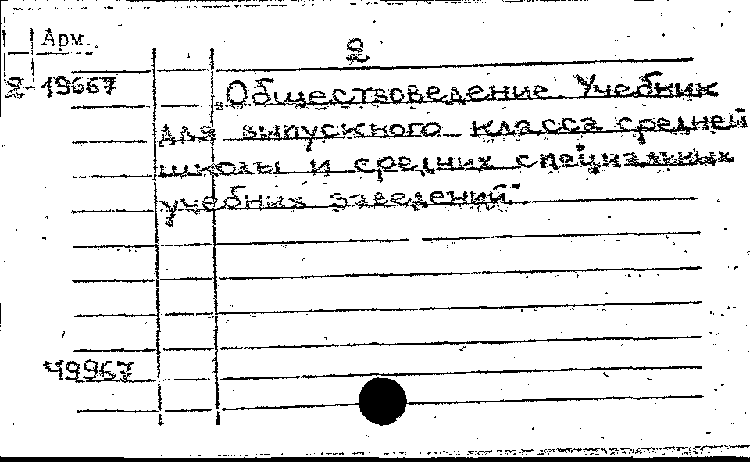 Арм.
2
2-19667
„Обществоведение. Учебник
для выпускного класса средней
школы и средних специальных
учебных заведений".
49967